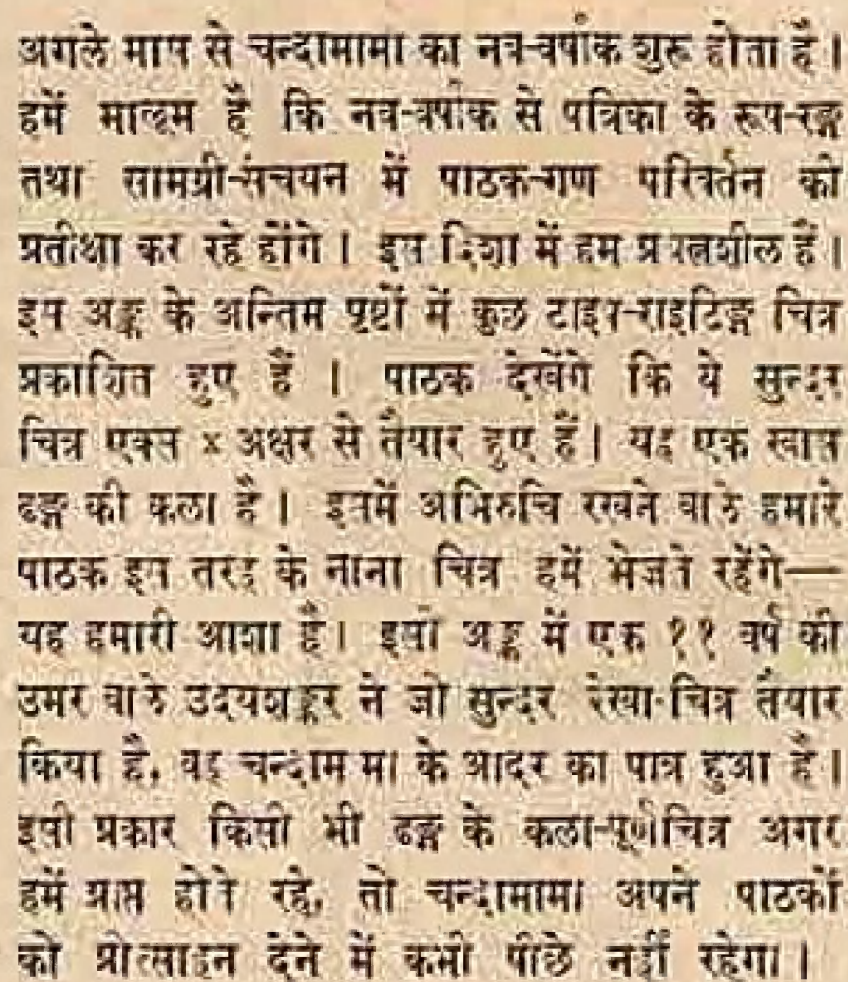 अगले मास से चन्दामामा का नव-वर्षांक शुरू होता है।
हमें मालूम है कि नव-वर्षांक से पत्रिका के रूप-रङ्ग
तथा सामग्री-संचयन में पाठक-गण परिवर्तन की
प्रतीक्षा कर रहे होंगे। इस दिशा में हम प्रयत्नशील हैं।
इस अङ्क के अन्तिम पृष्टों में कुछ टाइप-राइटिङ्ग चित्र
प्रकाशित हुए हैं । पाठक देखेंगे कि ये सुन्दर
चित्र एक्स x अक्षर से तैयार हुए हैं। यह एक खास
ढङ्ग की कला है। इसमें अभिरुचि रखने वाले हमारे
पाठक इस तरह के नाना चित्र हमें भेजते रहेंगे—
यह हमारी आशा है। इसी अङ्क में एक ११ वर्ष की
उमर वाले उदयशङ्कर ने जो सुन्दर रेखा-चित्र तैयार
किया है, वह चन्दामामा के आदर का पात्र हुआ है।
इसी प्रकार किसी भी ढङ्ग के कला-पूर्ण चित्र अगर
हमें प्राप्त होते रहे, तो चन्दामामा अपने पाठकों
को प्रोत्साहन देने में कभी पीछे नहीं रहेगा।